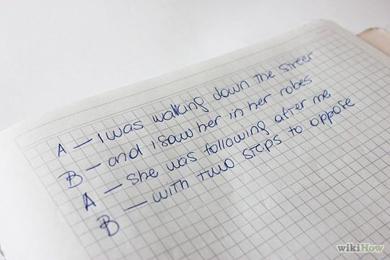 A — I was walking down the street
B — and I saw her in her robes
A — She was following after me
B — with two steps to oppose
wikiHow